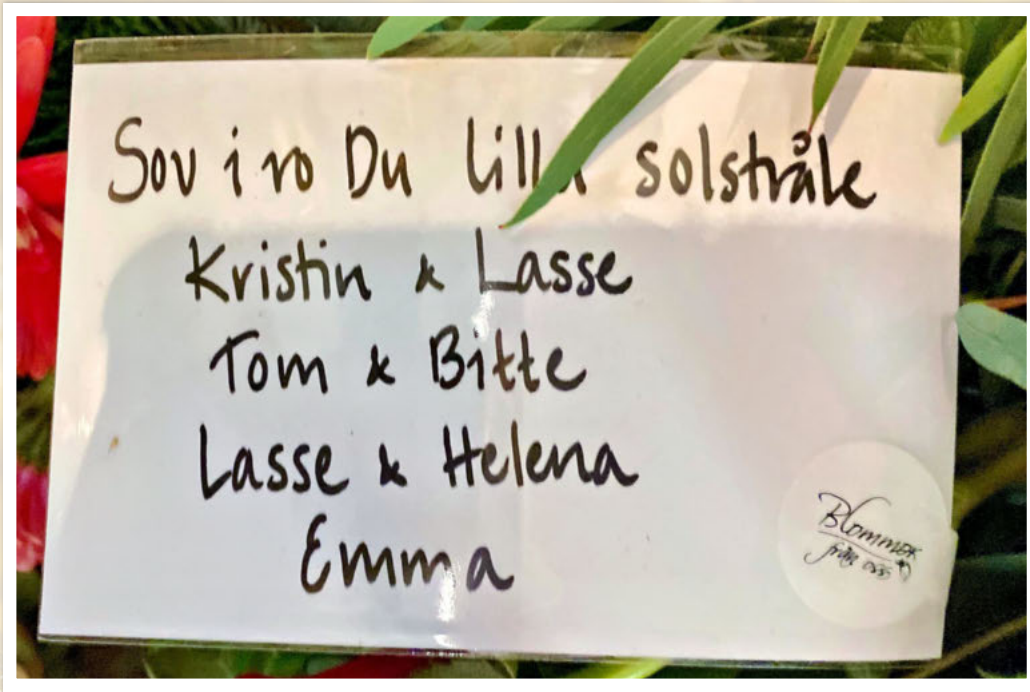 Sov i ro Du lilla solstråle
Kristin & Lasse
Tom & Bitte
Lasse & Helena
Emma
Blommor
från oss